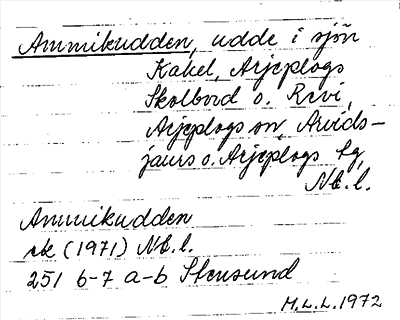 Ammikudden, udde i sjön
Kakel, Arjeplogs
Skolbord o. Revi,
Arjeplogs sn, Arvids-
jaurs o. Arjeplogs tg,
Nb. l.
Ammikudden
rk (1971) Nb. l.
25I 6-7 a-b Stensund
M.L.L. 1972